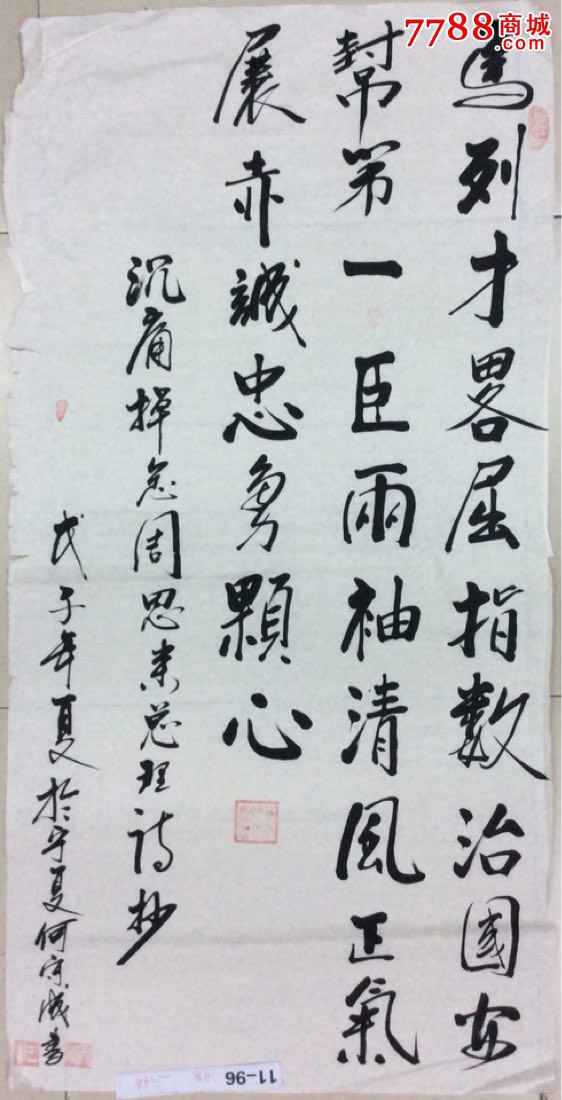 馬列才畧屈指数治國安
幇第一臣兩袖清風正氣
展赤誠忠勇顆心
沉痛掉念周恩来总理诗抄
戊子年夏於宁夏何宗成書
7788商城
.com
11-96